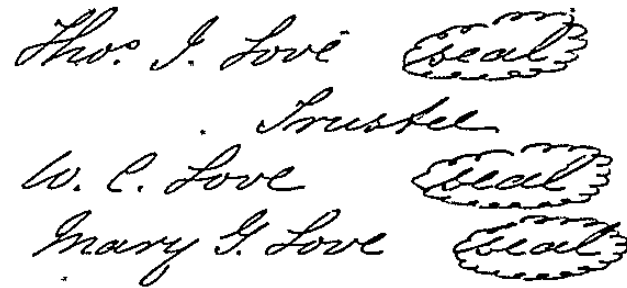 Thos. J. Love seal
Trustee
W. C. Love seal
Mary G. Love seal